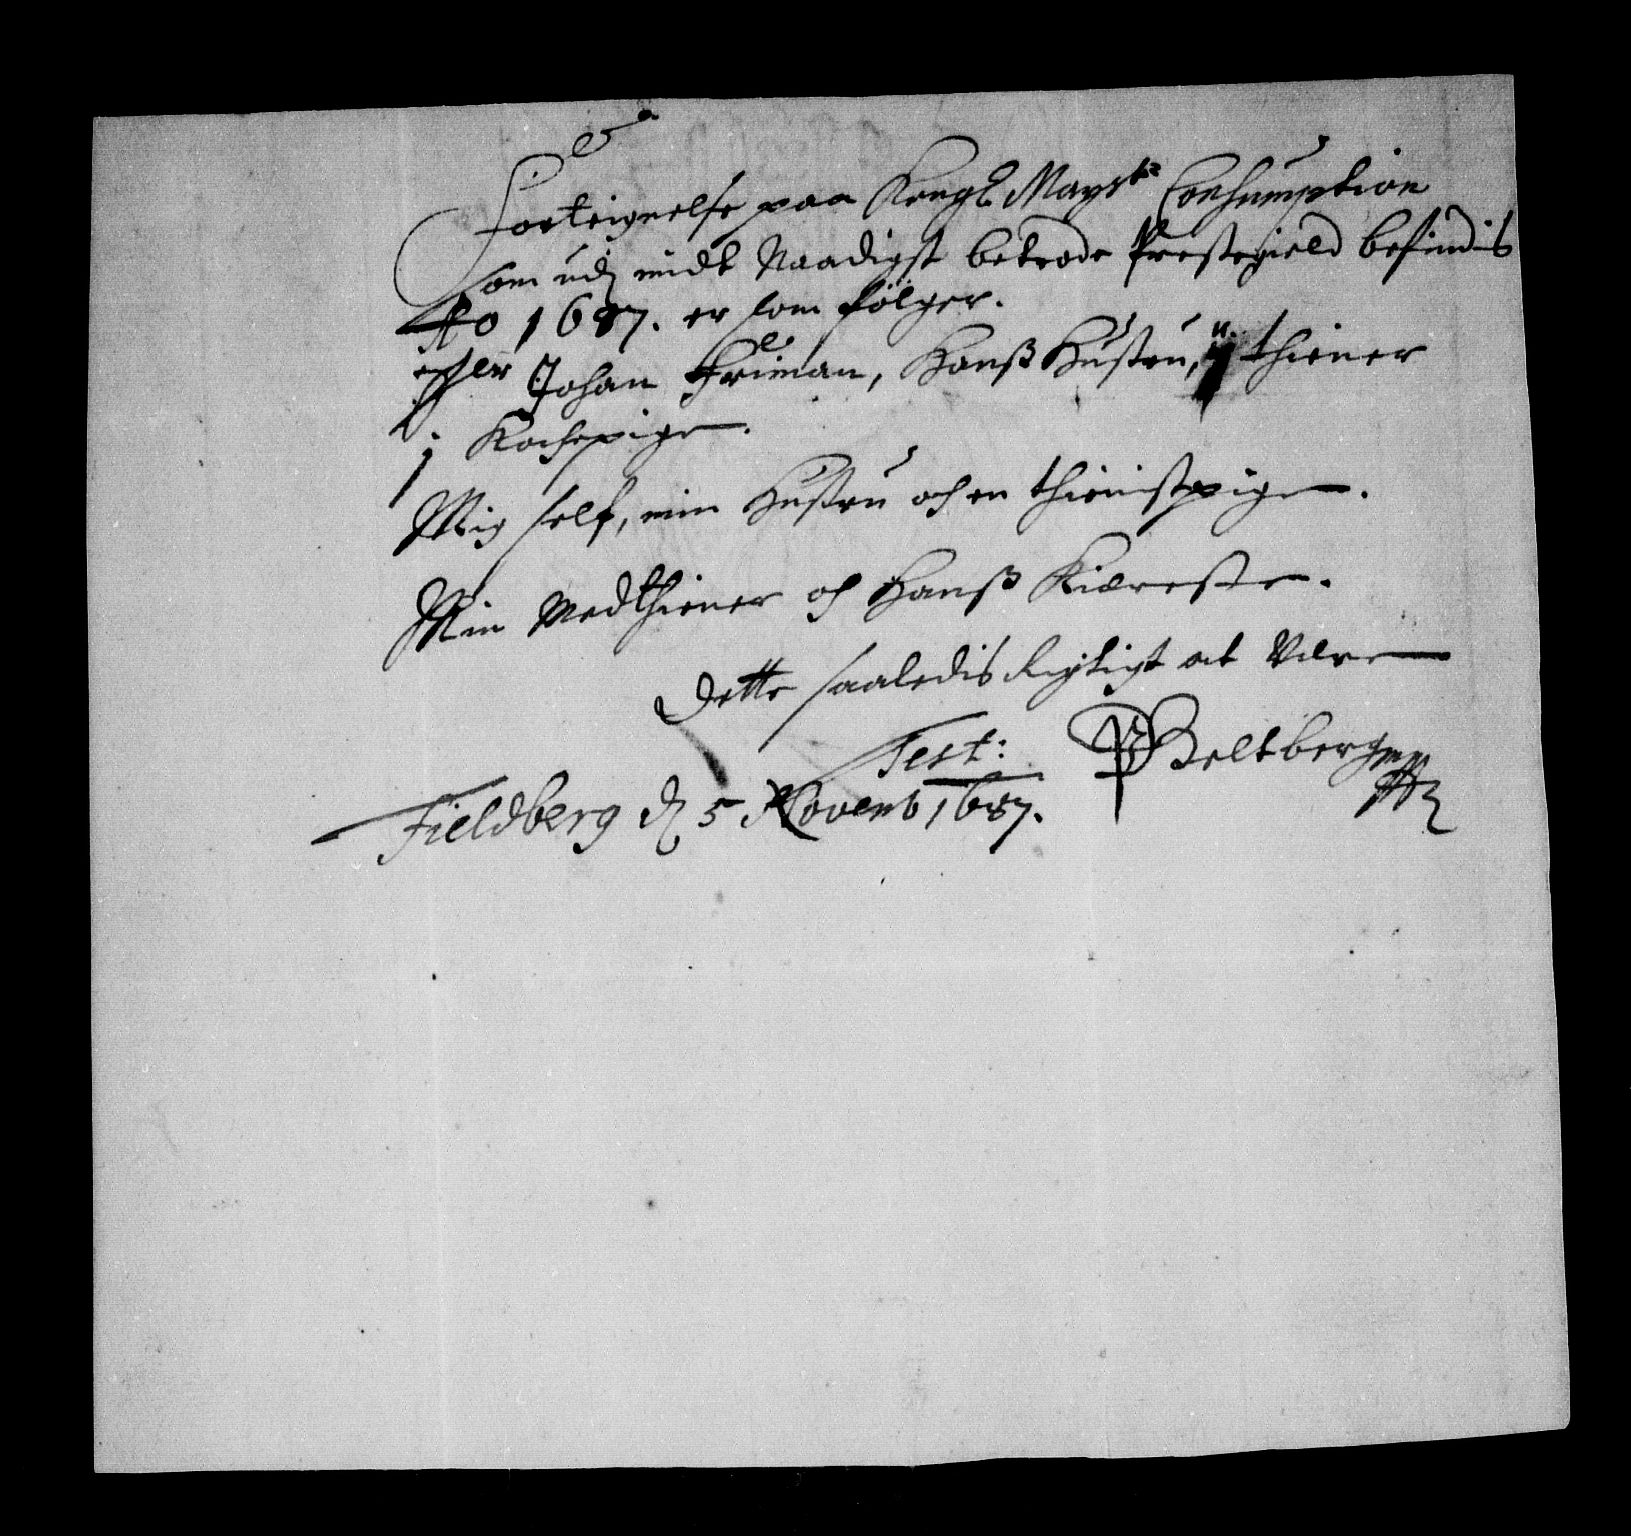 Forteignelse paa Kongl Mayts Consumption
som udj midt Naadigst betrode Prestegield befindis
Ao 1687. er som følger.
Johan Friman, Hanß Hustru, thiener
1 Kochepige.
Mig self, min Hustru och en thienistpige.
Min Medthiener och Hanß Kiæreste.
Dette saaledis Rigtigt at Være
Test: Beltberg
Fieldberg d 5 Novemb 1687.